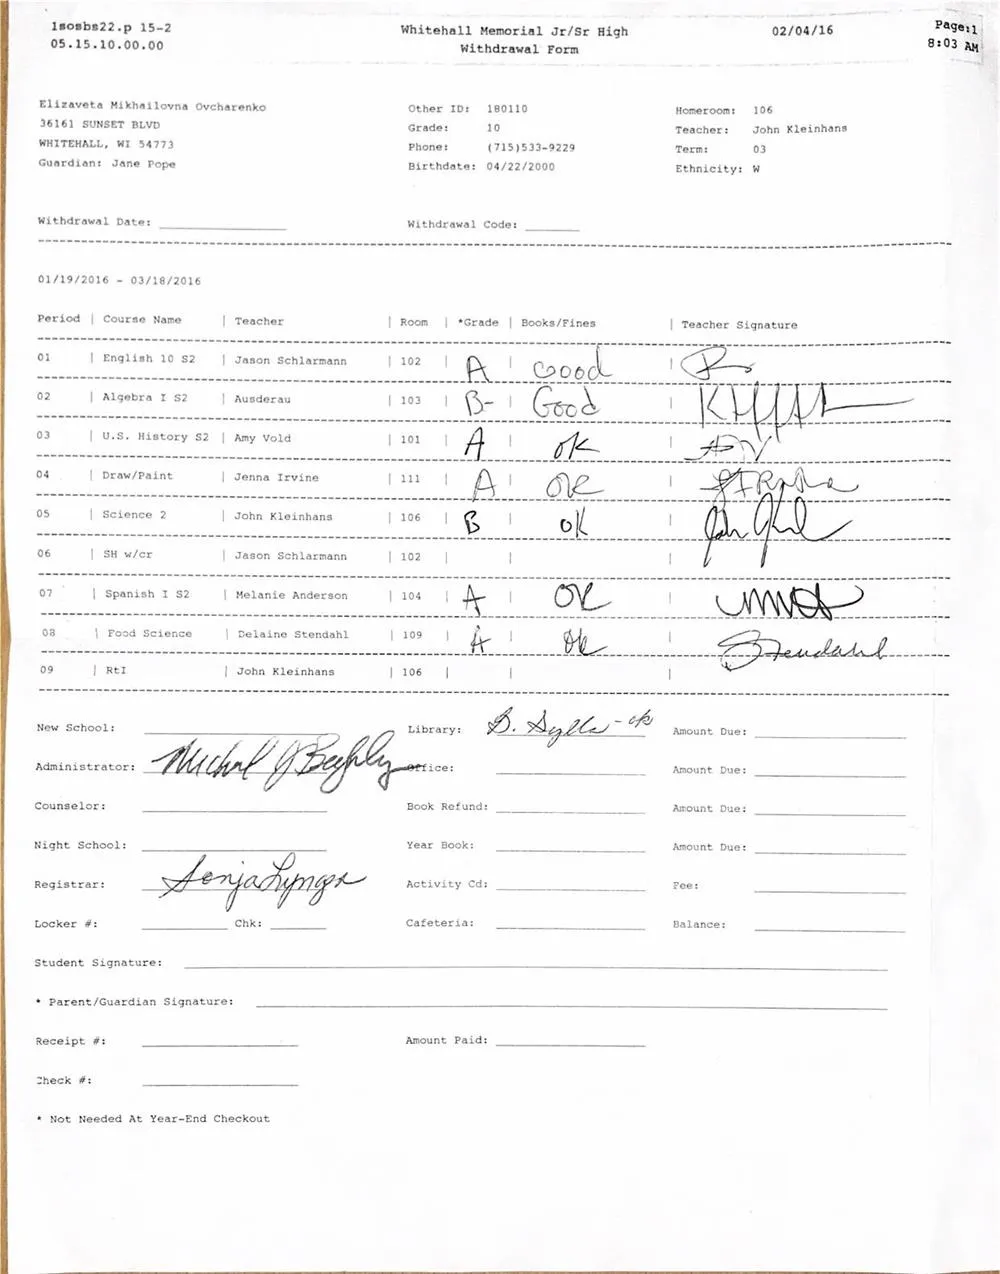 1sosbs22.p 15-2 Whitehall Memorial Jr/Sr High 02/04/16 Page:1
05.15.10.00.00 Withdrawal Form 8:03 AM
Elizaveta Mikhailovna Ovcharenko Other ID: 180110 Homeroom: 106
36161 SUNSET BLVD Grade: 10 Teacher: John Kleinhans
WHITEHALL, WI 54773 Phone: (715)533-9229 Term: 03
Guardian: Jane Pope Birthdate: 04/22/2000 Ethnicity: W
Withdrawal Date: Withdrawal Code:
01/19/2016 - 03/18/2016
Period | Course Name | Teacher | Room | *Grade | Books/Fines | Teacher Signature
01 | English 10 S2 | Jason Schlarmann | 102 | A | Good |
02 | Algebra I S2 | Ausderau | 103 | B- | Good |
03 | U.S. History S2 | Amy Vold | 101 | A | ok |
04 | Draw/Paint | Jenna Irvine | 111 | A | OK |
05 | Science 2 | John Kleinhans | 106 | B | OK |
06 | SH w/cr | Jason Schlarmann | 102 | | |
07 | Spanish I S2 | Melanie Anderson | 104 | A | OK
08 | Food Science | Delaine Stendahl | 109 | A | Ok Stendahl
09 | RtI | John Kleinhans | 106 | | |
New School: Library: B. - ok Amount Due:
Administrator: Michael J Beighley Office: Amount Due:
Counselor: Book Refund: Amount Due:
Night School: Year Book: Amount Due:
Registrar: Sonja Activity Cd: Fee:
Locker #: Chk: Cafeteria: Balance:
Student Signature:
* Parent/Guardian Signature:
Receipt #: Amount Paid:
Check #:
* Not Needed At Year-End Checkout